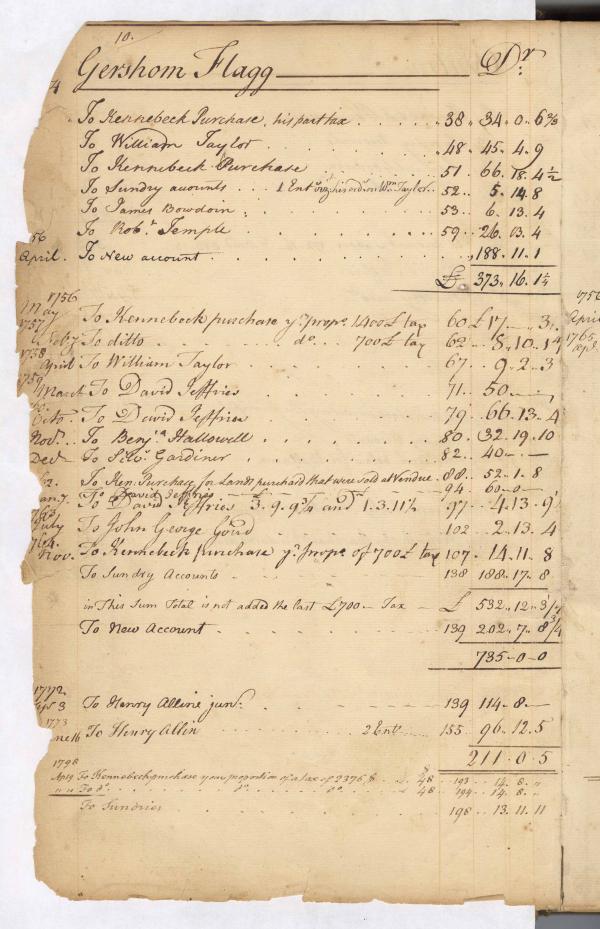 10.
Gershom Flagg Dr:
To Kennebeck Purchase, his part tax 38 34 0 6 2/3
To William Taylor 48 45 4 9
To Kennebeck Purchase 51 66 18 4 1/2
To Sundry acounts 1 Entry his ord. on Wm Taylor 52 5 14 8
To James Bowdoin 53 6 13 4
To Robt Temple 59 26 13 4
April To New account 188 11 1
£ 373 16 1 1/4
1756
May To Kennebeck purchase yr prope 1400£ tax 60 £17 3
1757
Feby To ditto do 700£ tax 62 8 10 1
1758
April To William Taylor 67 9 2 3
1759
March To David Jeffries 71 50
Octo. To David Jeffries 79 66 13 4
Novr. To Benja Hallowell 80 32 19 10
Decr To Silvr Gardiner 82 40
To Ken. Purchase for Lands purchasd that were sold at Vendue 88 52 1 8
To David Jeffries 94 60 0
To David Jeffries 3. 9. 9 3/4 and 1. 3. 11 1/4 97 4 13 9
July To John George Gourd 102 2 13 4
Nov. To Kennebeck purchase yr prope of 700£ tax 107 14 11 8
To Sundry Accounts 138 188 17 8
in This Sum Total is not added the last £700 Tax £ 532 12 3 1/4
To New Account 139 202 7 8 3/4
735 0 0
1772
3 To Henry Alline junr. 139 114 8
1773
16 To Henry Allin 2 Ents 155 96 12 5
211 0 5
1798
To Kennebeck purchase your proportion of a tax of 2376 $ 48 193 14 8
" " To do. do. do. 48 194 14 8
To Sundries 198 13 11 11
1756
April
1765